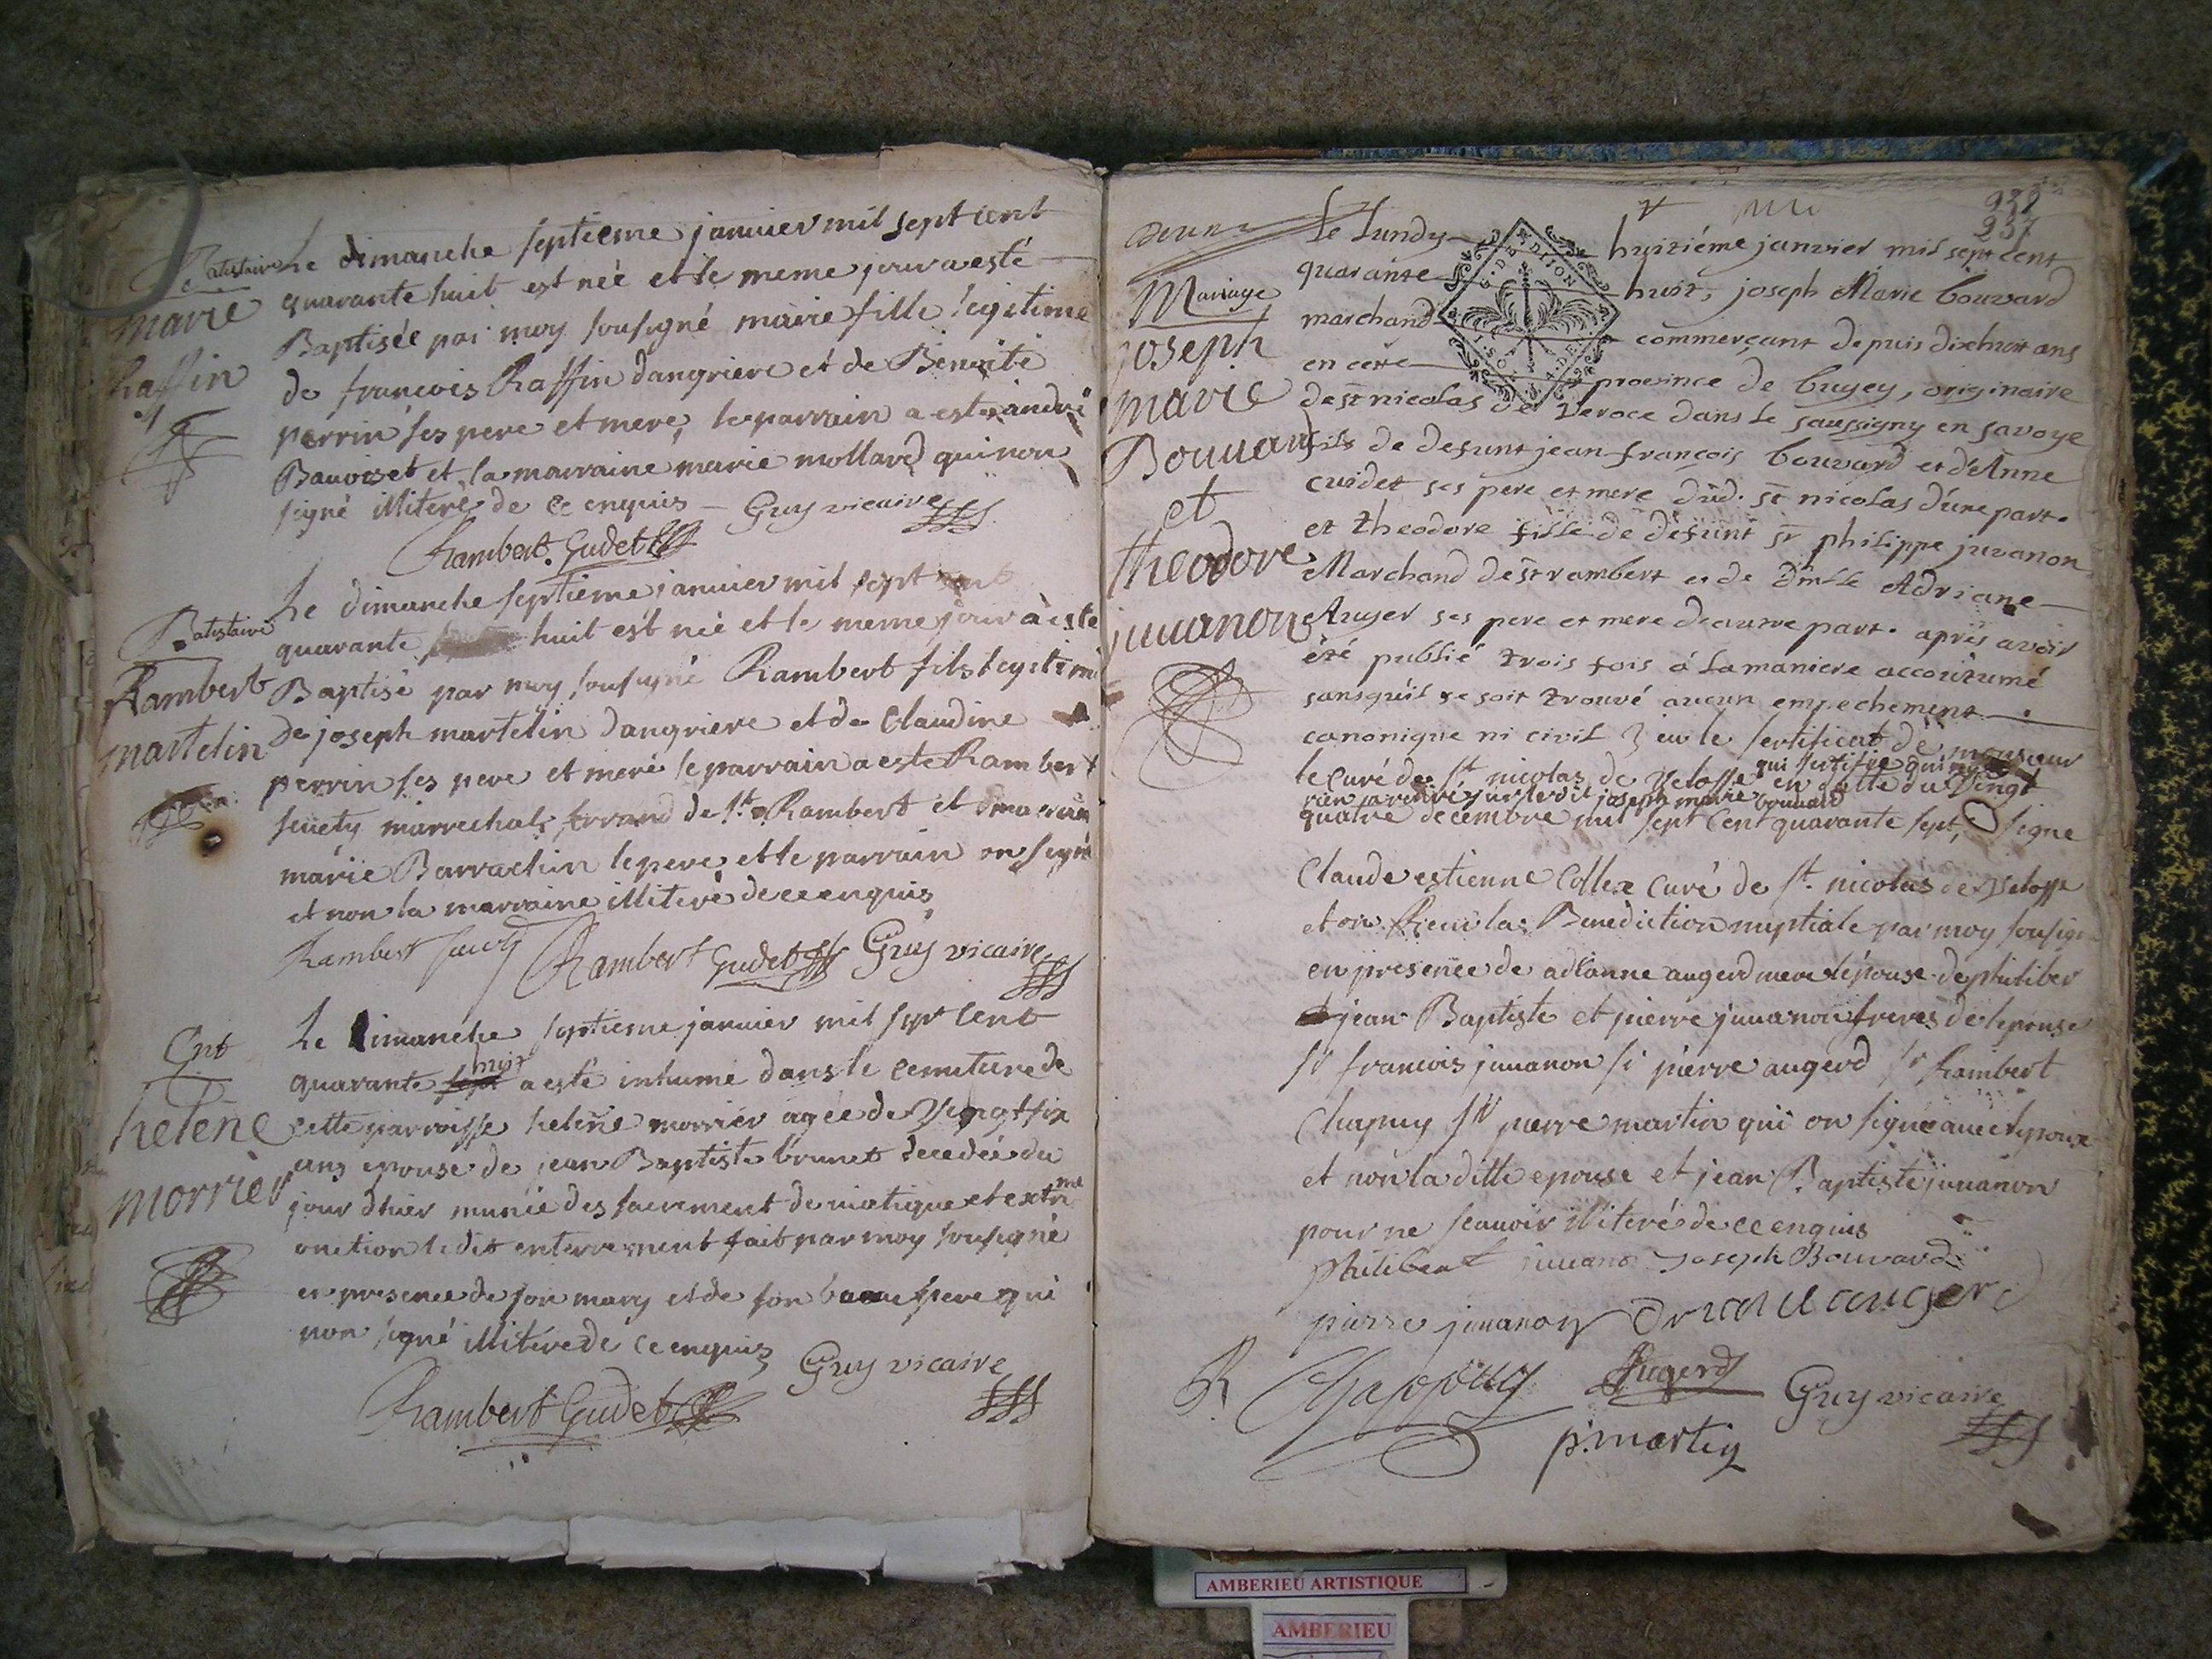 Batistaire
marie
Raffin
Le dimanche septieme janvier mil sept cent
quarante huit est née et le meme jour a esté
Baptisée par moy sousigné marie fille legitime
de francois Raffin dangriere et de Benoite
perrin ses pere et mere, le parrain a este andré
et la marraine marie mollard qui non
signé illiteré de ce enquis Guy vicaire
Rambert Gudet
Batistaire
Rambert
martelin
Le dimanche septieme janvier mil sept cent
quarante huit est né et le meme jour a este
Baptisé par moy sousigné Rambert fils legitime
de joseph martelin dangriere et de Claudine
perrin ses pere et mere le parrain a este Rambert
marrechal de St Rambert et
marie Barrachin le pere et le parrain on signé
et non la marraine illiteré de ce enquis
Rambert Rambert Gudet Guy vicaire
Ent
helene
morrier
Le Dimanche septieme janvier mil sept cent
quarante sept huit a esté inhumé dans le cemitiere de
cette parroisse helene morrier agée de vingt six
ans epouse de jean Baptiste brunet decedée du
jour dhier munie des sacrement de viatique et extrme
onction ledit enterrement fait par moy sousigné
en presence de son mary et de son beau pere qui
non signé illitere de ce enquis Guy vicaire
Rambert Gudet
938
937
Mariage
joseph
marie
Bouuard
et
theodore
juuanon
Le Lundy huitiéme janvier mil sept cent
quarante huit, joseph Marie bouvard
marchand commerçant depuis dixhuit ans
en cete province de bugey, originaire
G. DE DIJON
de st nicolas de veroce dans le faussigny en savoye
fils de defunt jean françois bouvard et d'Anne
cuidet ses pere et mere dud. st nicolas d'une part.
et theodore fille de défunt sr philippe juvanon
Marchand de st rambert et de Adriane
Auger ses pere et mere d'autre part. aprìs avoir
été publié trois fois á la maniere accoutumé
sansqu'il se soit trouvé aucun empechement
canonique ni civil eu le sertificat de monsieur
le curé de St nicolas de Velosse en datte du Vingt
qui sertifie
joseph marie bouuard
quatre decembre mil sept cent quarante sept, signe
Claude estienne Collex Curé de St. nicolas de Velosse
et on Receu la Benediction nuptiale par moy sousigné
en presence de adrianne augerd mere de lépouse de philiber
jean Baptiste et pierre juuanon freres de lepouse
sr francois juuanon sr pierre augerd sr Rambert
Chapuy sr pierre martin qui on signé auec lepoux
et non la ditte epouse et jean Baptiste juuanon
pour ne scauoir illiteré de ce enquis
philibert juuano Joseph Bouvard
pierre juuanon augerd
R Chapuy Augerd Guy vicaire
p. martin
AMBERIEU ARTISTIQUE
AMBERIEU